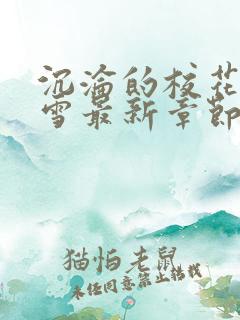 沉沦的校花
雪最新章节
猫怕老鼠
未经同意禁止转载